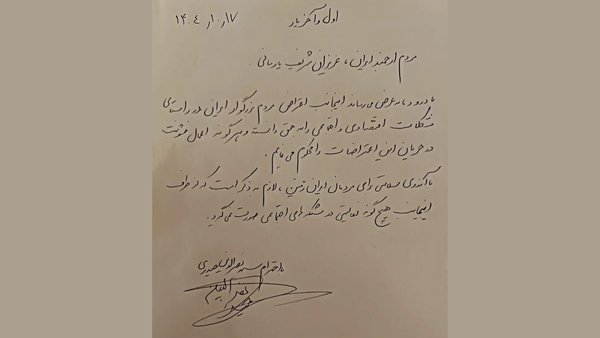 ۱۴۰۴/۱۰/۱۷
اول و آخر یار
مردم ارجمند ایران، عزیزان شریف یارسانی
با درود، به عرض می‌رساند اینجانب اعتراض مردم بزرگوار ایران در راستای
مشکلات اقتصادی و اجتماعی را به حق دانسته و هر گونه اعمال خشونت
در جریان این اعتراضات را محکوم می‌نمایم.
با آرزوی سلامتی برای مردمان ایران زمین، لازم به ذکر است که از طرف
اینجانب هیچ گونه فعالیتی در شبکه‌های اجتماعی صورت نمی‌گیرد.
با احترام سید نصرالدین حیدری